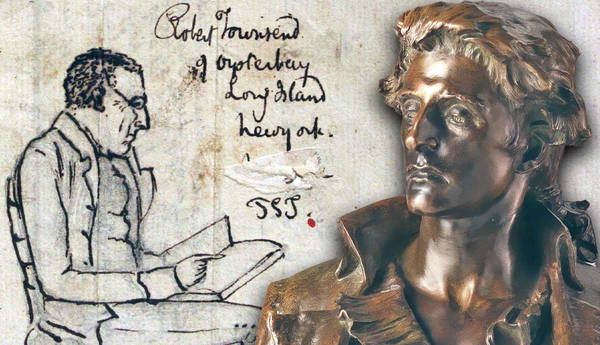 Robert Townsend
of oysterbay
Long Island
newyork.
TST.